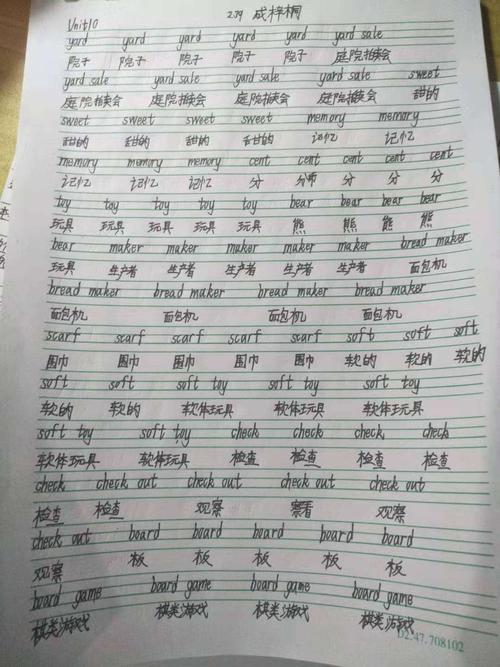 Unit10 2.29 成梓桐
yard yard yard yard yard yard sale
院子 院子 院子 院子 院子 庭院拍卖会
yard sale yard sale yard sale yard sale sweet
庭院拍卖会 庭院拍卖会 庭院拍卖会 庭院拍卖会 甜的
sweet sweet sweet sweet memory memory
甜的 甜的 甜的 甜的 记忆 记忆
memory memory memory cent cent cent cent
记忆 记忆 记忆 分 分币 分 分
toy toy toy toy toy bear bear bear
玩具 玩具 玩具 玩具 玩具 熊 熊 熊 熊
bear maker maker maker maker maker bread maker
玩具 生产者 生产者 生产者 生产者 生产者 面包机
bread maker bread maker bread maker bread maker
面包机 面包机 面包机 面包机
scarf scarf scarf scarf scarf soft soft soft
围巾 围巾 围巾 围巾 围巾 软的 软的 软的
soft soft soft toy soft toy soft toy
软的 软的 软体玩具 软体玩具 软体玩具
soft toy soft toy check check check check
软体玩具 软体玩具 检查 检查 检查 检查
check check out check out check out check out
检查 检查 观察 察看 观察
check out board board board board board
观察 板 板 板 板 板
board game board game board game board game
棋类游戏 棋类游戏 棋类游戏 棋类游戏
02.47.708102